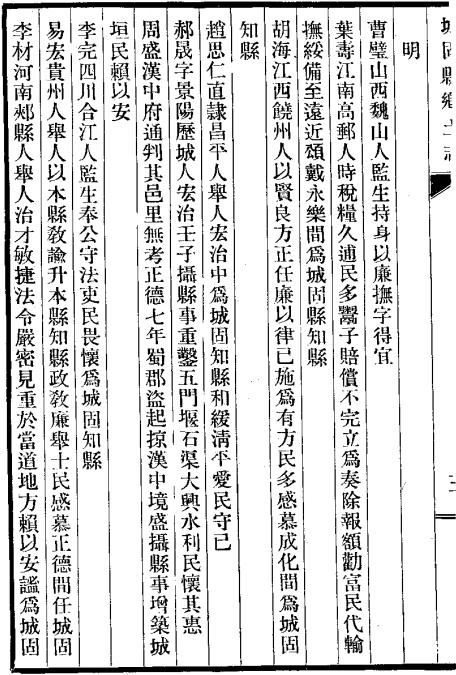 城固縣鄉土志
明
曹璧山西魏山人監生持身以廉撫字得宜
葉壽江南高郵人時稅糧久逋民多鬻子賠償不完立爲奏除報額勸富民代輸
撫綏備至遠近頌戴永樂間爲城固縣知縣
胡海江西饒州人以賢良方正任廉以律己施爲有方民多感慕成化間爲城固
知縣
趙思仁直隸昌平人舉人宏治中爲城固知縣和緩淸平愛民守己
郝晟字景陽歷城人宏治壬子攝縣事重鑿五門堰石渠大興水利民懷其惠
周盛漢中府通判其邑里無考正德七年蜀郡盜起掠漢中境盛攝縣事增築城
垣民賴以安
李完四川合江人監生奉公守法吏民畏懷爲城固知縣
易宏貴州人舉人以本縣敎諭升本縣知縣政敎廉舉士民感慕正德間任城固
李材河南郟縣人舉人治才敏捷法令嚴密見重於當道地方賴以安謐爲城固